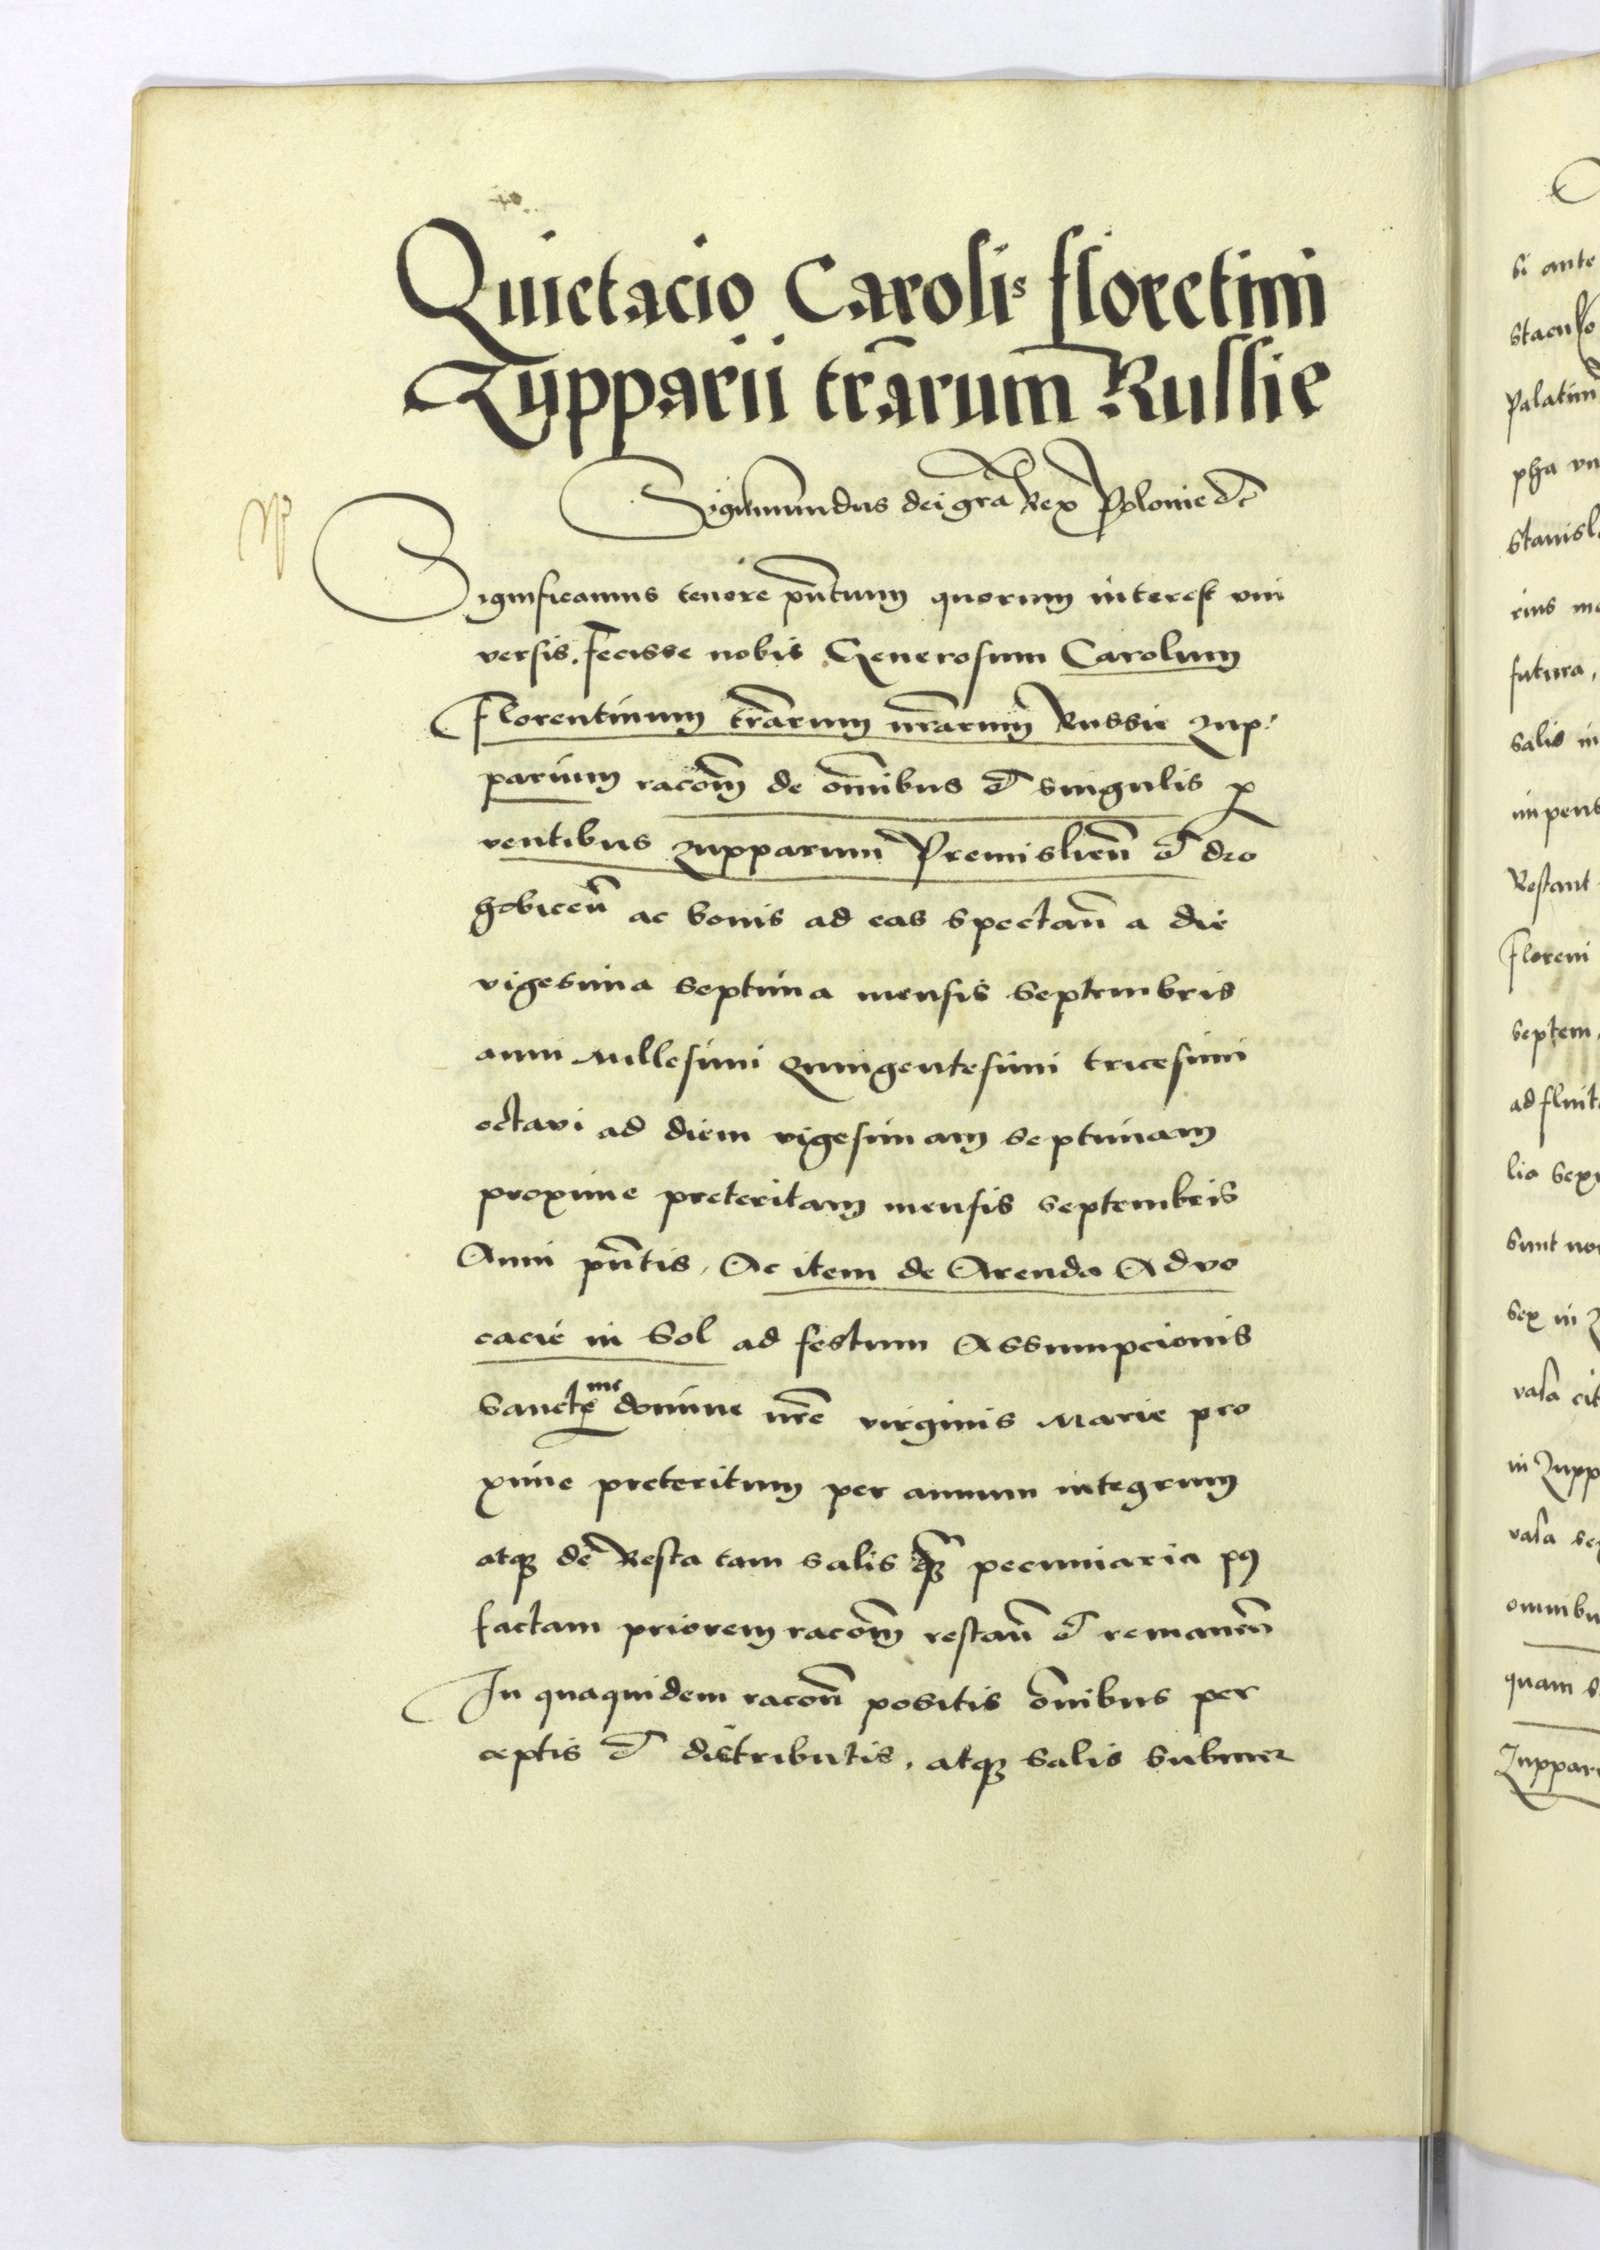 Quietacio Caroli s floretini
Zupparii trarum Russie
Sigismundus dei gra Rex Polonie etc
Significamus tenore pntium quorum interest uni
versis. Fecisse nobis Generosum Carolum
Florentinum trarum nrarum Russie zup
parium racom de omibus et singulis p
ventibus zupparum Premislien et dro
hobicen ac bonis ad eas spectan a die
vigesima septima mensis septembris
anni Millesimi Quingentesimi tricesimi
octavi ad diem vigesimam septimam
proxime preteritam mensis septembris
Anni pntis, Ac item de Arenda Advo
cacie in Sol ad festum Assumpcionis
Sanctme domine nre virginis Marie pro
xime preteritum per annum integrum
atq de Resta tam salis q pecuniaria p9
factam priorem racom restan et remanen
In quaquidem racon positis omibus per
ceptis et distributis, atq salis
bi ante
Palatin
pha
Stanisl
futura,
salis in
impens
Restant
Floreni
septem,
ad fluit
sunt no
sex in
vasa
in Zupp
vasa
omnibu
quam
Zuppar